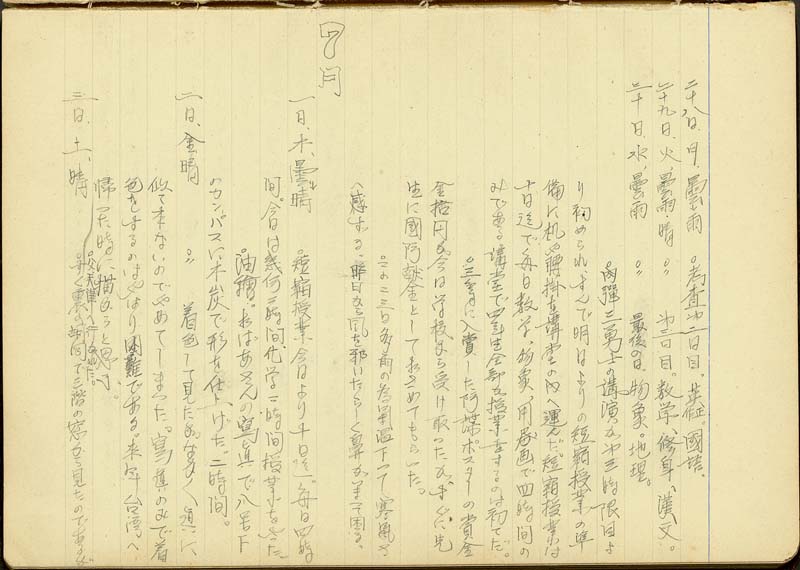 二十八日、月、曇雨 考査第一日目。英征。國語。
二十九日、火、曇雨晴 〃 第二日目。数学、修身、漢文。
三十日、水、曇雨 〃 最後の日。物象。地理。
の講演が第三時限目よ
り初められ、すんで明日よりの短縮授業の準
備に机や腰掛を講堂の内へ運んだ。短縮授業は
十日迄で毎日数学、物象、用器画で四時間の
みである。講堂で四年生全部が授業をするのは初てだ。
に入賞したポスターの賞金
金拾円を今日学校から受け取ったが、すぐに先
生に國防献金としておさめてもらった。
この二三日多雨の為気温下って寒風を
感ずる。昨日から風を邪いたらしく鼻がまって困る。
7月
一日、木、曇晴 短縮授業 今日より十日迄毎日四時
間。今日は幾何二時間、化学二時間授業をした。
油繪。おばあさんの寫真で八号下
のカンバスに木炭で形を仕上げた。二時間。
二日、金、晴 〃 着色して見たがまったく真に
似て来ないのでやめてしまった。寫真のみで着
色をするのはやはり困難である。来年台湾へ
帰った時に描かうと思ふ。
三日、土、晴
早く裏の
で三階の窓から見たのであるが